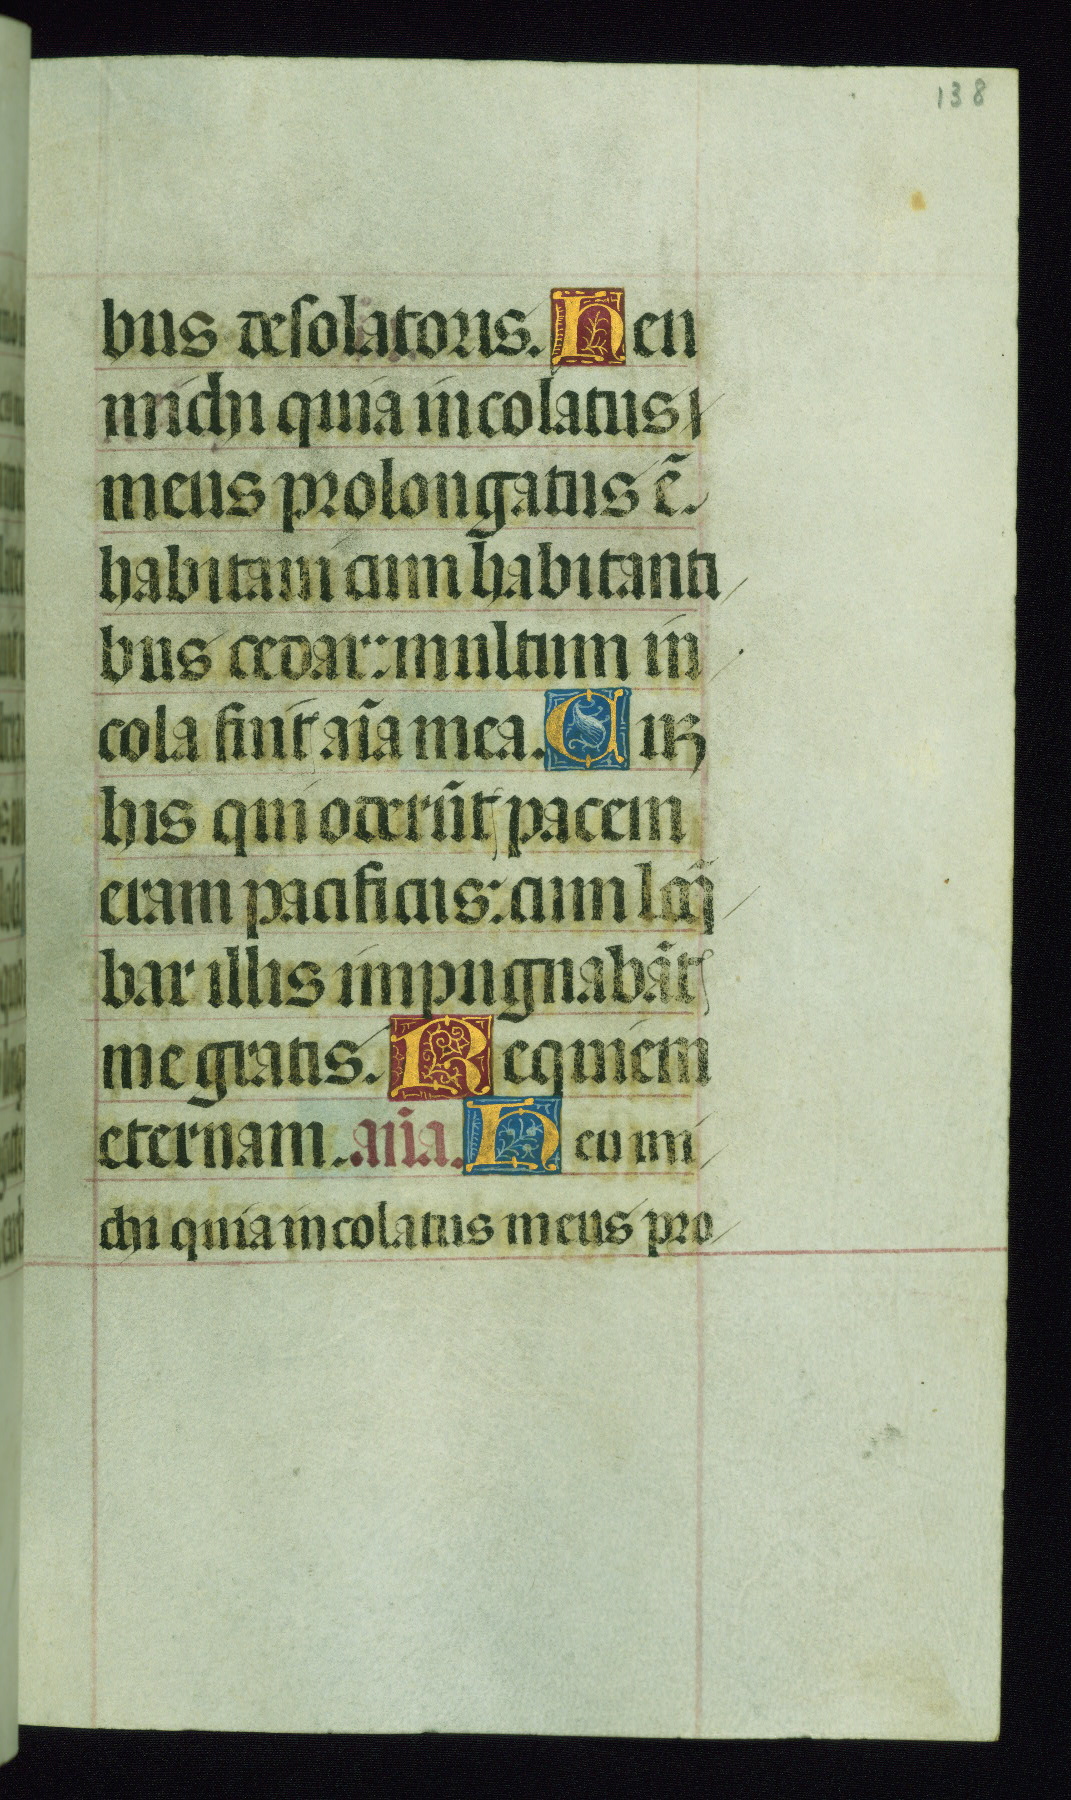 138
bus desolatoriis. Heu
michi quia incolatus
meus prolongatus ē.
habitaui cum habitanti
bus cedar: multum in
cola fuit aīa mea. Cū
his qui oderūt pacem
eram pacificus: cum loq̄
bar illis impugnabāt
me gratis. Requiem
eternam. an̄a. Heu mi
chi quia incolatus meus pro